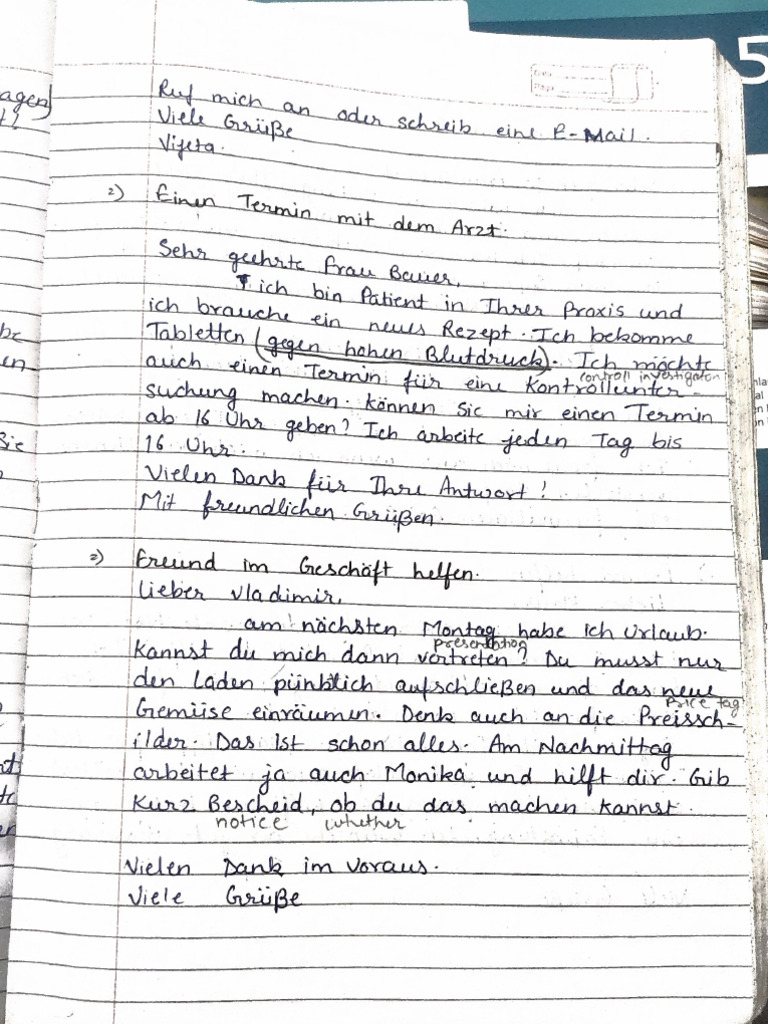 agen)
t!
Ruf mich an oder schreib eine E-Mail.
Viele Grüße
Vijeta.
2) Einen Termin mit dem Arzt.
Sehr geehrte Frau Bauer,
ich bin Patient in Ihrer Praxis und
ich brauche ein neues Rezept. Ich bekomme
Tabletten (gegen hohen Blutdruck). Ich möchte
auch einen Termin für eine Kontrollunter-
controll investigation
suchung machen. können Sie mir einen Termin
ab 16 Uhr geben? Ich arbeite jeden Tag bis
16 Uhr.
Vielen Dank für Ihre Antwort!
Mit freundlichen Grüßen.
2) Freund im Geschäft helfen.
Lieber Vladimir,
am nächsten Montag habe ich Urlaub.
presentation
Kannst du mich dann vertreten? Du musst nur
den Laden pünktlich aufschließen und das neue
price tag
Gemüse einräumen. Denk auch an die Preissch-
ilder. Das ist schon alles. Am Nachmittag
arbeitet ja auch Monika und hilft dir. Gib
Kurz Bescheid, ob du das machen kannst.
notice whether
Vielen Dank im Voraus.
Viele Grüße
5